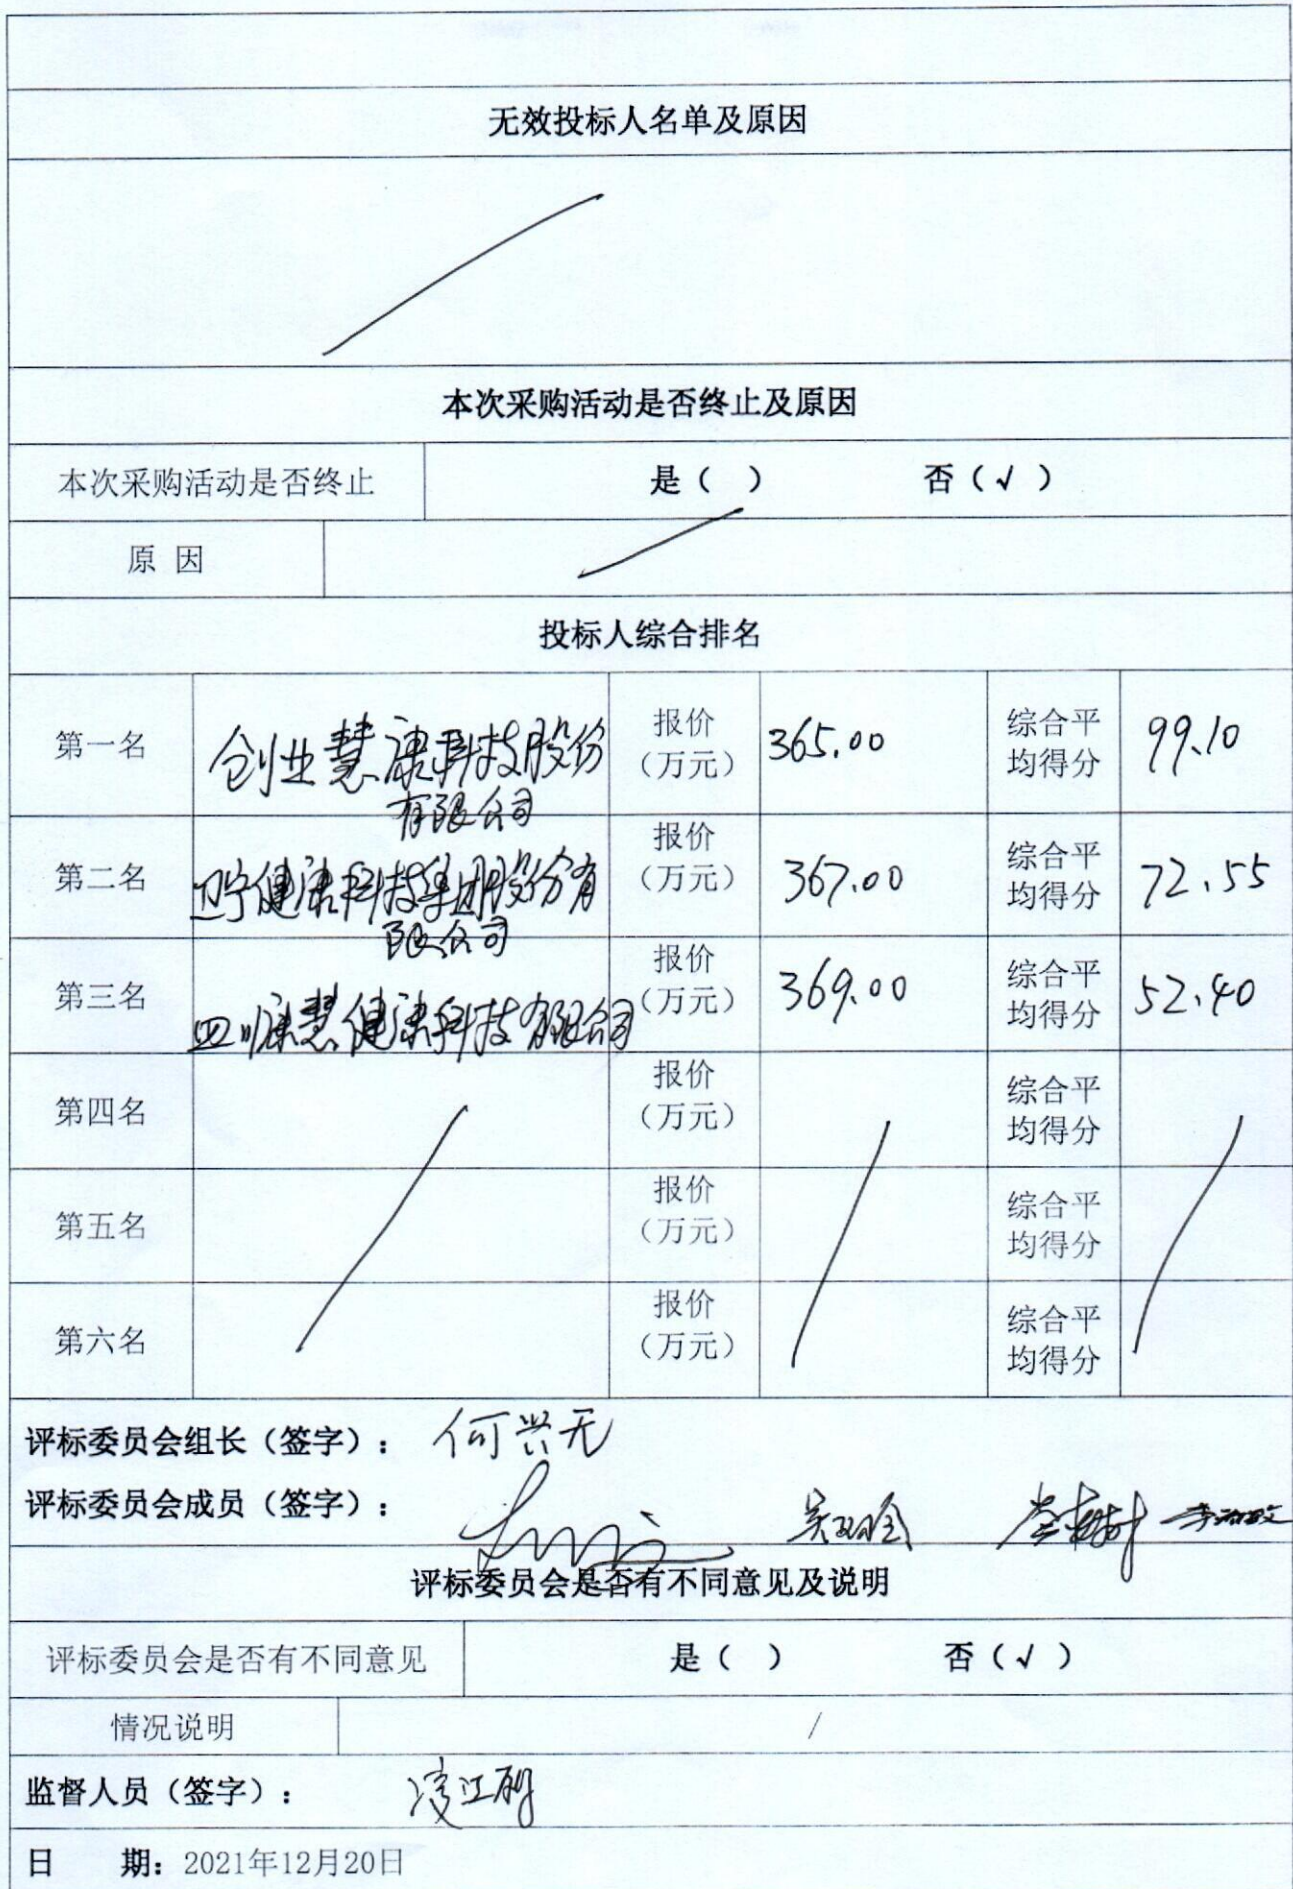 无效投标人名单及原因
本次采购活动是否终止及原因
本次采购活动是否终止 是（ ） 否（√）
原 因
投标人综合排名
第一名 创业慧康科技股份有限公司 报价（万元） 365.00 综合平均得分 99.10
第二名 辽宁健康科技集团股份有限公司 报价（万元） 367.00 综合平均得分 72.55
第三名 四川康慧健康科技有限公司 报价（万元） 369.00 综合平均得分 52.40
第四名 报价（万元） 综合平均得分
第五名 报价（万元） 综合平均得分
第六名 报价（万元） 综合平均得分
评标委员会组长（签字）： 何兴无
评标委员会成员（签字）：
评标委员会是否有不同意见及说明
评标委员会是否有不同意见 是（ ） 否（√）
情况说明 /
监督人员（签字）：
日 期：2021年12月20日